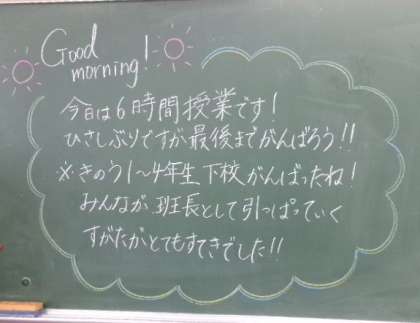 Good
morning!
今日は6時間授業です!
ひさしぶりですが最後までがんばろう!!
※きのう1~4年生下校がんばったね!
みんなが班長として引っぱっていく
すがたがとてもすてきでした!!